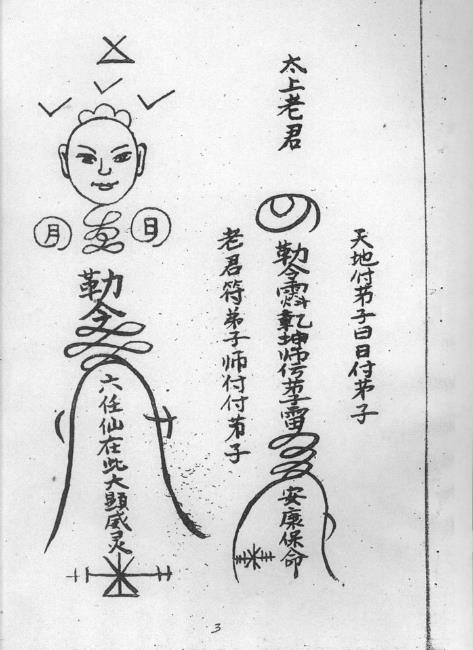 太上老君
天地付弟子日日付弟子
勒令
乾坤师传弟子雷
安康保命
老君符弟子师付付弟子
月
日
勒令
六任仙在此大顯威灵
3